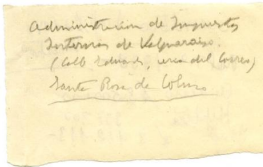 Administracion de Impuestos
Internos de Valparaiso.
(Calle                cerca del Correo)
Santa Rosa de Colmo